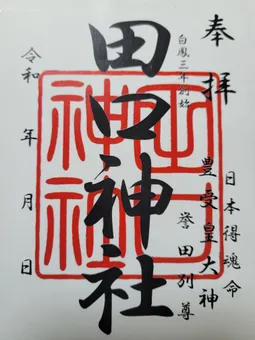 奉拝
日本得魂命
豊受皇大神
誉田別尊
白鳳三年創始
田口神社
田口神社
令和 年 月 日